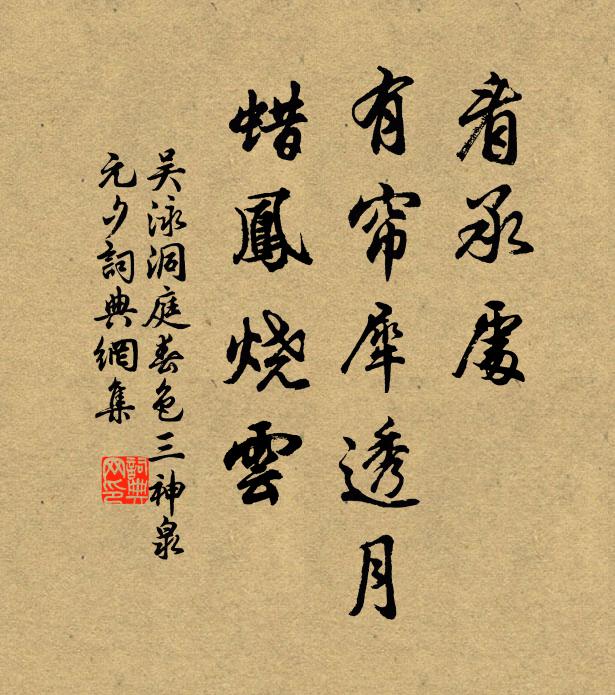 看承處
有帘犀透月
蜡鳳烧雲
吴泳洞庭春色三神泉
元夕詞典網集
詞典网印